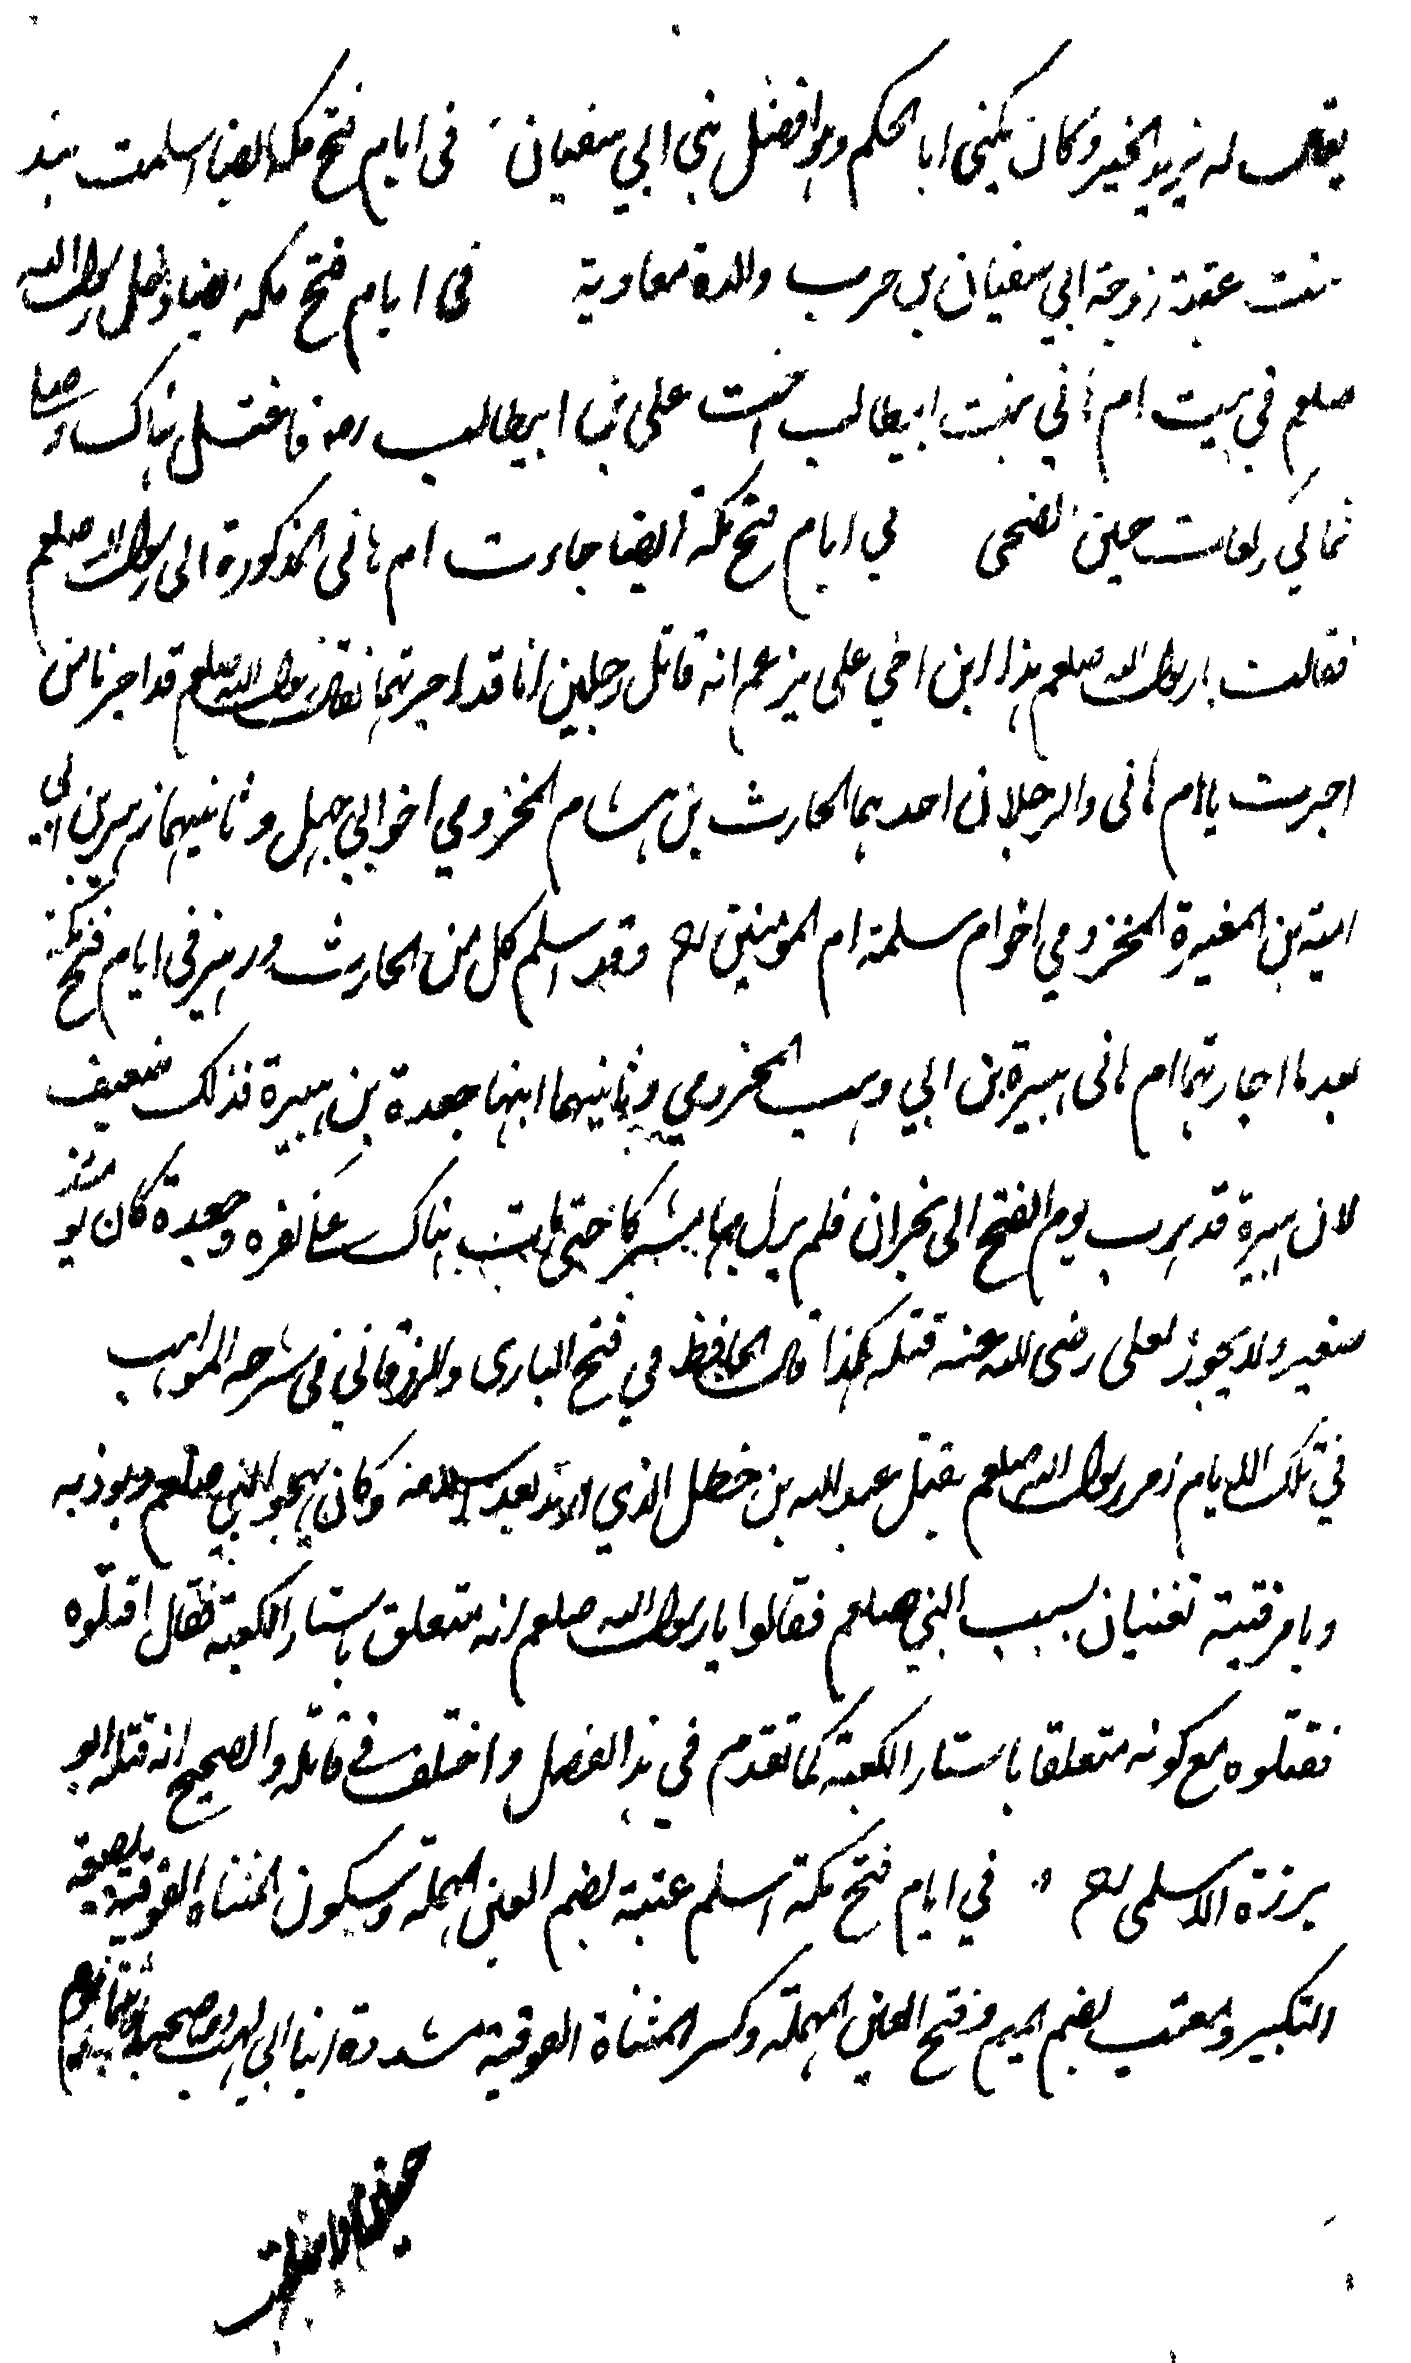 يقال له يزيد الخير وكان يكنى ابا الحكم وهو افضل بني ابي سفيان في ايام فتح مكة ايضا اسلمت هند
بنت عقبة زوجة ابي سفيان بن حرب والدة معاوية في ايام فتح مكة ايضا دخل رسول الله
صلعم في بيت ام هاني بنت ابيطالب اخت علي بن ابيطالب رض فاغتسل هناك وصلى
ثماني ركعات حين الضحى في ايام فتح مكة ايضا جاءت ام هانى المذكورة الى رسول الله صلعم
فقالت يا رسول الله صلعم هذا ابن اخي علي يزعم انه قاتل رجلين انا قد اجرتهما فقال رسول الله صلعم قد اجرنا من
اجرت يا ام هانى والرجلان احدهما الحارث بن هشام المخزومي اخو ابي جهل وثانيهما زهير بن ابي
امية بن المغيرة المخزومي اخو ام سلمة ام المومنين رض وقد اسلم كل من الحارث وزهير في ايام فتح مكة
بعد ما اجارتهما ام هانى هبيرة بن ابي وهب المخزومي وثانيهما ابنها جعدة بن هبيرة فذلك ضعيف
لان هبيرة قد هرب يوم الفتح الى نجران فلم يزل بها مشركا حتى مات هناك على كفره وجعدة كان يومئذ
صغير ولا يجوز لعلي رضى الله عنه قتله هكذا قال الحافظ في فتح البارى والزرقاني في شرح المواهب
في تلك الايام امر رسول الله صلعم بقتل عبد الله بن خطل الذي ارتد بعد اسلامه وكان يهجو النبي صلعم ويوذيه
تغنيان بسبب النبي صلعم فقالوا يا رسول الله صلعم انه متعلق باستار الكعبة فقال اقتلوه
فقتلوه مع كونه متعلقا باستار الكعبة كما تقدم في هذا الفصل واختلف في قاتله والصحيح انه قتله ابو
برزة الاسلمى رض في ايام فتح مكة اسلم عتبة بضم العين المهملة وسكون المثناة الفوقية بصيغة
التكبير ومعتب بضم الميم وفتح العين المهملة وكسر المثناة الفوقية مشددة ابنا ابي لهب